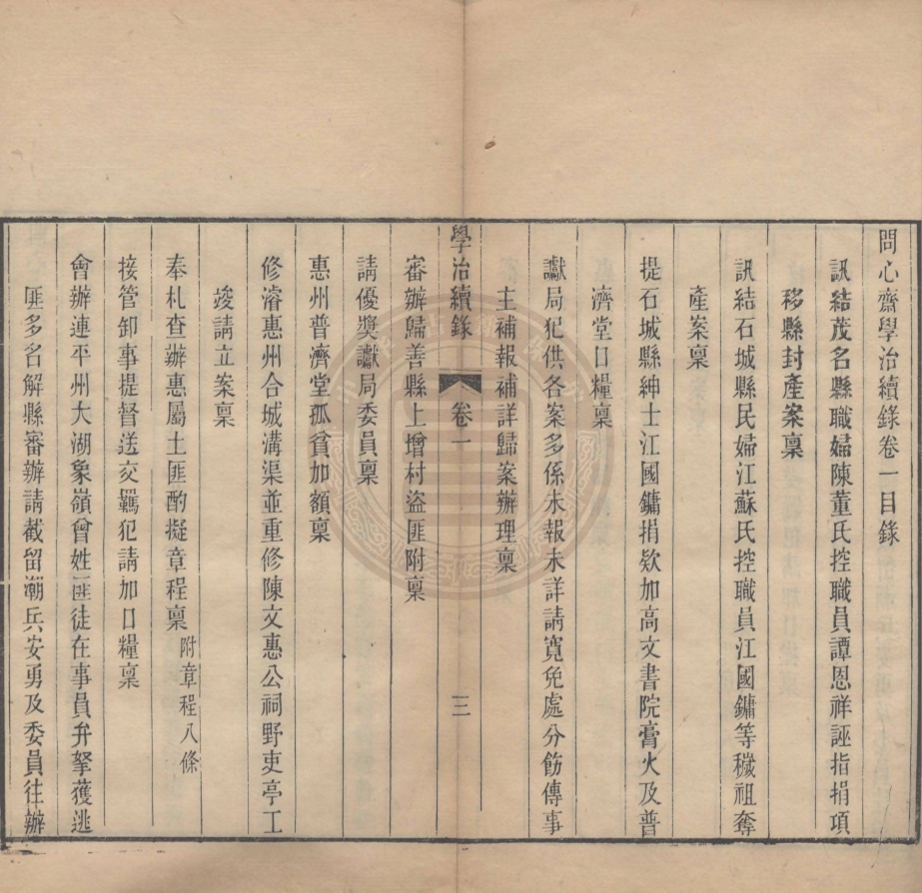 問心齋學治續錄卷一目錄
訊結茂名縣職婦陳董氏控職員譚恩祥誣指捐項
移縣封產案稟
訊結石城縣民婦江蘇氏控職員江國鏞等穢祖奪
產案稟
提石城縣紳士江國鏞捐欵加高文書院膏火及普
濟堂口糧稟
讞局犯供各案多係未報未詳請寬免處分飭傳事
主補報補詳歸案辦理稟
學治續錄 卷一 三
審辦歸善縣上增村盜匪附稟
請優獎讞局委員稟
惠州普濟堂孤貧加額稟
修濬惠州合城溝渠並重修陳文惠公祠野吏亭工
竣請立案稟
奉札查辦惠屬土匪酌擬章程稟 附章程八條
接管卸事提督送交羈犯請加口糧稟
會辦連平州大湖象嶺曾姓匪徒在事員弁拏獲逃
匪多名解縣審辦請截留潮兵安勇及委員往辦